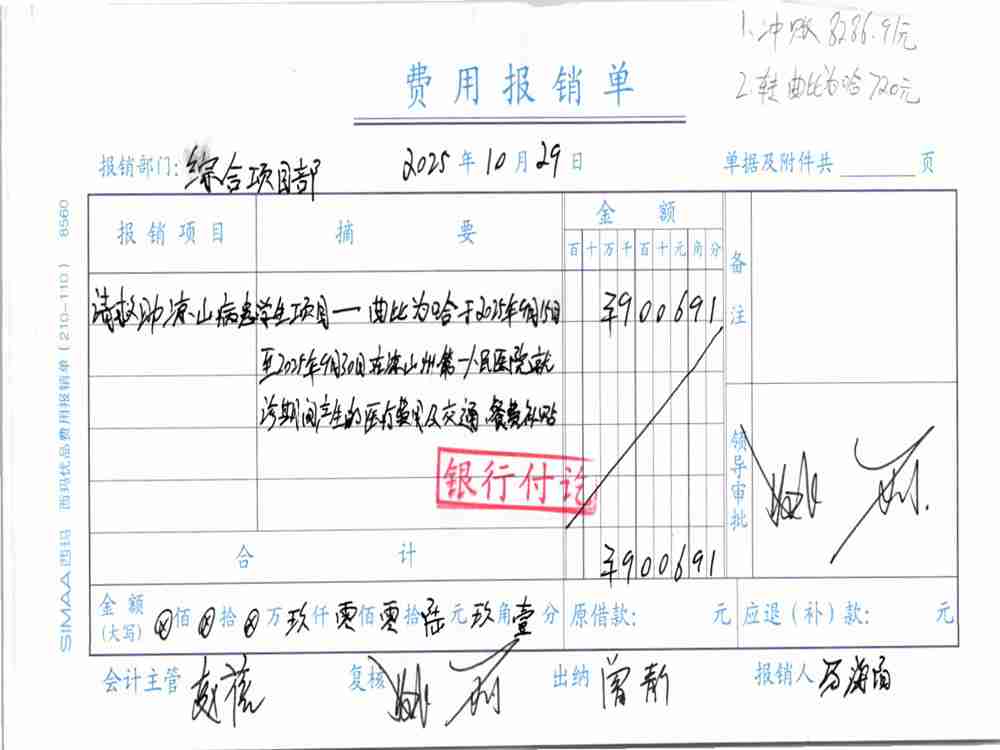 1.冲账8286.91元
2.转曲比为哈720元
费用报销单
报销部门:综合项目部 2025年10月29日 单据及附件共 页
报销项目 摘 要 金 额 备注
百十万千百十元角分
请救助凉山病患学生项目一曲比为哈于2025年9月15日 ¥900691
至2025年9月30日在凉山州第一人民医院就
诊期间产生的医疗费用及交通、餐费补贴
银行付讫
领导审批
合 计 ¥900691
金额(大写) ⊗佰⊗拾⊗万玖仟零佰零拾陆元玖角壹分 原借款: 元 应退(补)款: 元
会计主管 复核 出纳 曾 报销人 马海
SIMAA西玛 西玛优品费用报销单(210-110) 8560